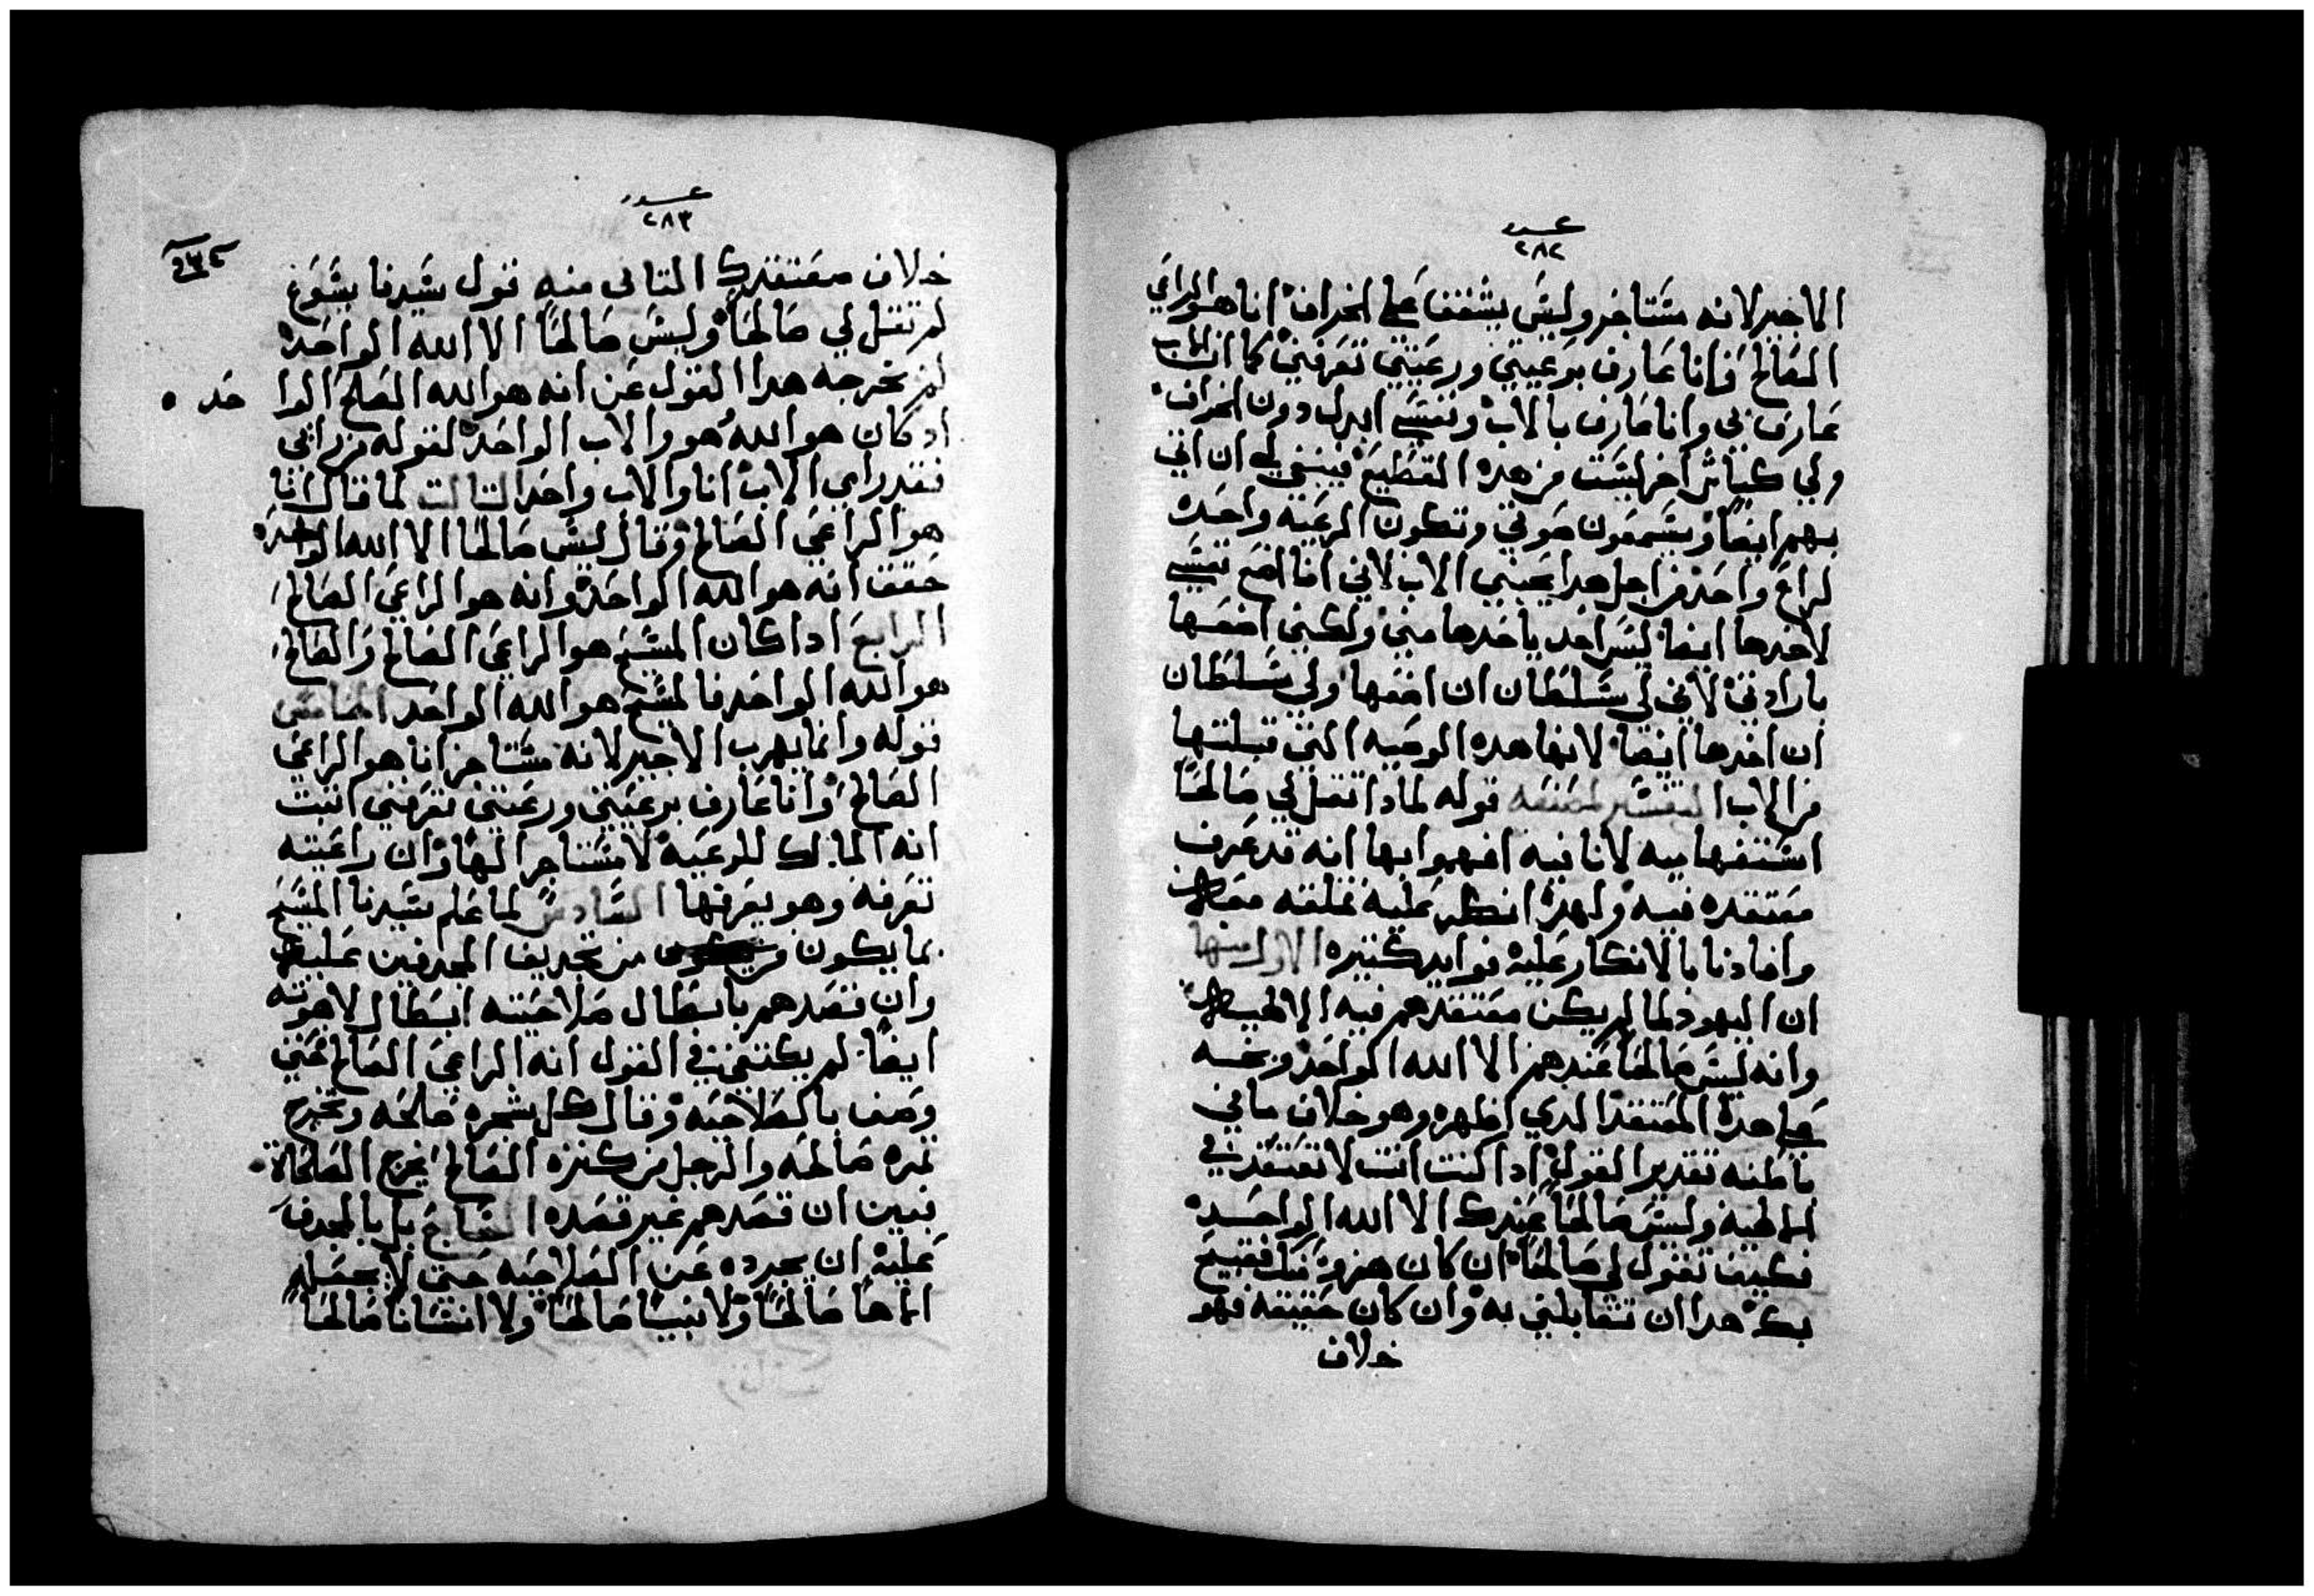 عدد
٢٨٢
الاجير لانه مستاجر وليس يشفق على الخراف انا هو الراعي
الصالح وانا عارف برعيتي ورعيتي تعرفني كما ان الاب
عارف بي وانا عارف بالاب ونفسي ابدل دون الخراف
ولي كباش اخر ليست من هده القطيع فينبغي لي ان اتي
بهم ايضا ويسمعون صوتي وتكون الرعيه واحده
لراع واحد من اجل هدا يحبني الاب لاني انا اضع نفسي
لاخدها ايضا ليس احد ياخدها مني ولكني اضعها
بارادتي لاني لي سلطان ان اضعها ولي سلطان
ان اخدها ايضا لانها هده الوصيه التي قبلتها
من الاب التفسير لمصنفه قوله لمادا تقل لي صالحا
استفهاميه لا نافيه افهموا بها انه قد عرف
معتقده فيه ولهدا انكر عليه تملقه
وافادنا بالانكار عليه فوايد كتيره الاول منها
ان اليهود لما لم يكن معتقدهم فيه الالهيه
وانه ليس صالحا عندهم الا الله الواحد وبخه
على هدا المعتقد الدي اظهره وهو خلاف ما في
باطنه تقدير القول ادا كنت انت لا تعتقد في
الالهيه وليس صالحا عندك الا الله الواحد
فكيف تقول لي صالحا ان كان هزو منك فقبيح
بك هدا ان تقابلني به وان كان حقيقه فهو
خلاف
عدد
٢٨٣
خلاف معتقدك التاني منه قول سيدنا يسوع
لم تقل لي صالحا وليس صالحا الا الله الواحد
لم يخرجه هدا القول عن انه هو الله الصالح الواحد
اد كان هو الله هو والاب الواحد لقوله من راني
فقد راي الاب انا والاب واحد التالت لما قال انا
هو الراعي الصالح وقال ليس صالحا الا الله الواحد
حقق انه هو الله الواحد وانه هو الراعي الصالح
الرابع ادا كان المسيح هو الراعي الصالح والصالح
هو الله الواحد فالمسيح هو الله الواحد الخامس
قوله وانما يهرب الاجير لانه مستاجر انا هو الراعي
الصالح وانا عارف برعيتي ورعيتي تعرفني اتبت
انه المالك للرعيه لا مستاجرا لها وان راعيته
تعرفه وهو يعرفها السادس لما علم سيدنا المسيح
بما يكون من تجديف المجدفين عليه
وان قصدهم بابطال صلاحيته ابطال لاهوته
ايضا لم يكتفي في القول انه الراعي الصالح حتي
وصف بالصلاحيه وقال كل شجره صالحه وتخرج
تمره صالحه والرجل من كنزه الصالح يخرج الصالحاة
فبين ان قصدهم غير قصده السابع بل بالمجدف
عليه ان يجرده عن الصلاحيه حتي لا يجعله
الاها صالحا ولا نبيا صالحا ولا انسانا صالحا